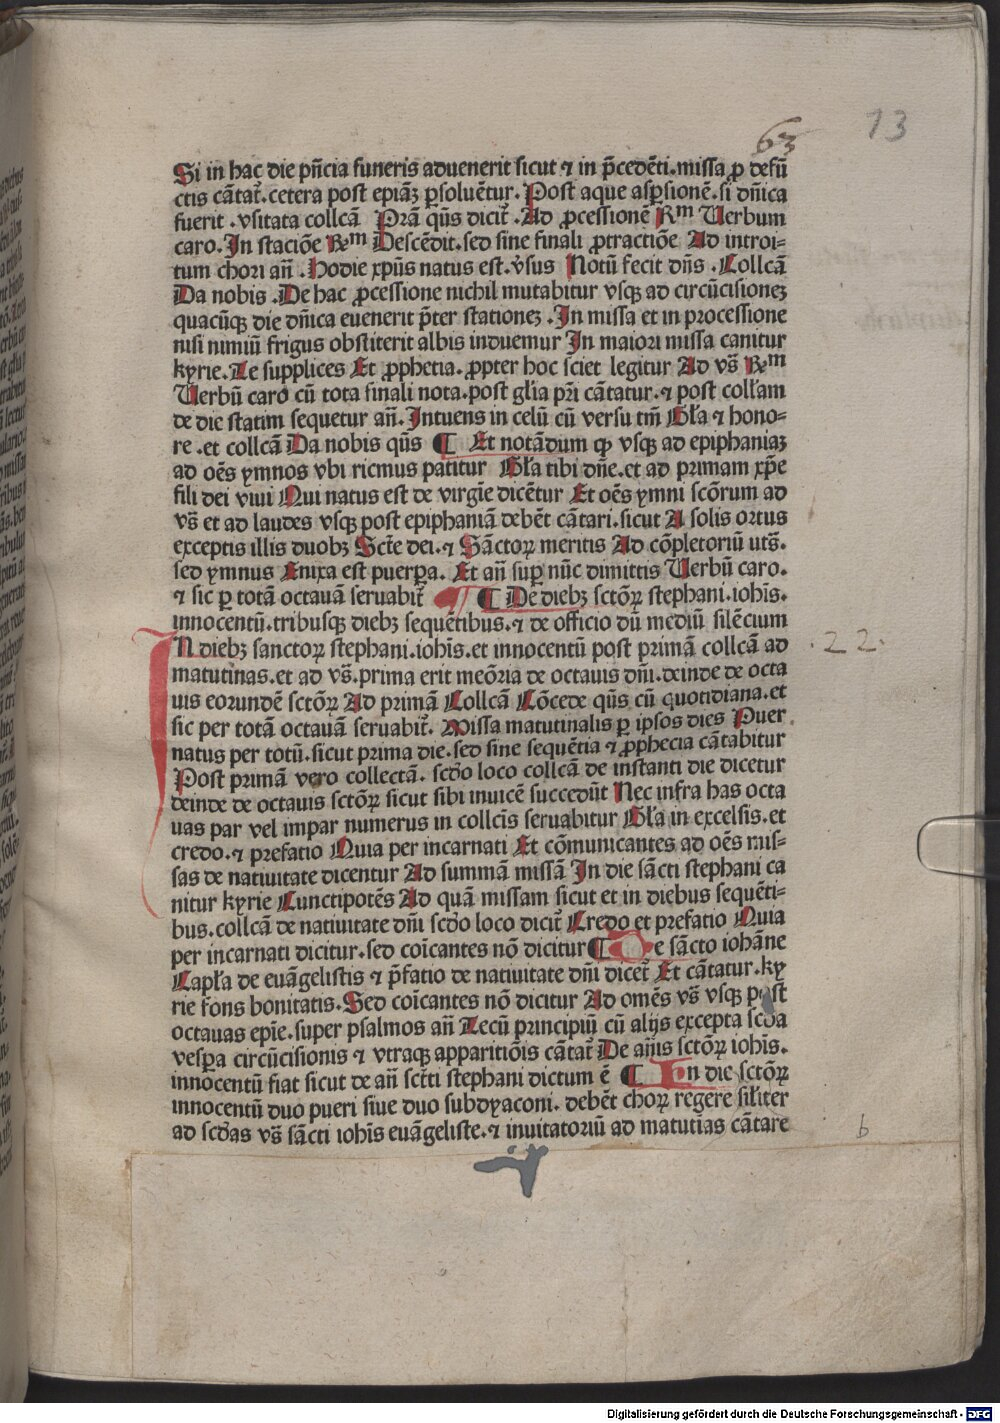 13
63
Si in hac die pñcia funeris aduenerit sicut ⁊ in p̄cedẽti.missa ꝓ defũ
ctis cãtat̃.cetera post epiãꝫ ꝑsoluẽtur. Post aque asꝑsionẽ.si dñica
fuerit .vsitata collcã Prã q̃s dicit̃ .Ad ꝓcessionẽ Rm Uerbum
caro.In staciõe Rm Descẽdit.sed sine finali ꝓtractiõe Ad introi⸗
tum chori añ .Hodie xp̃us natus est. v̾sus Notũ fecit dñs .Collcã
Da nobis .De hac ꝓcessione nichil mutabitur vsqꝫ ad circũcisionez
quacũqꝫ die dñica euenerit p̃ter stationez .In missa et in processione
nisi nimiũ frigus obstiterit albis induemur In maiori missa canitur
kyrie.Te supplices Et ꝓphetia.ꝓpter hoc sciet legitur Ad vs̃ Rm
Uerbũ caro cũ tota finali nota.post glia pr̃i cãtatur.⁊ post coll̃am
de die statim sequetur añ.Intuens in celũ cũ versu tm̃ Gl̃a ⁊ hono⸗
re .et collcã Da nobis q̃s ¶ Et notãdum ꝙ vsqꝫ ad epiphaniaꝫ
ad oẽs ymnos vbi ricmus patitur Gl̃a tibi dñe.et ad primam xp̃e
fili dei viui Qui natus est de virgĩe dicẽtur Et oẽs ymni scõrum ad
vs̃ et ad laudes vsqꝫ post epiphaniã debẽt cãtari.sicut A solis ortus
exceptis illis duobꝫ Scĩe dei.⁊ Sãctoꝝ meritis Ad cõpletoriũ uts̃.
sed ymnus Enixa est puerꝑa. Et añ suꝑ nũc dimittis Uerbũ caro.
⁊ sic ꝑ totã octauã seruabit̃ ¶ De diebꝫ sctõꝝ stephani.iohĩs.
innocentũ.tribusqꝫ diebꝫ sequẽtibus.⁊ de officio dũ mediũ silẽcium
IN diebꝫ sanctoꝝ stephani.iohĩs.et innocentũ post primã collcã ad
22.
matutinas.et ad vs̃.prima erit meõria de octauis dñi.deinde de octa
uis eorundẽ sctõꝝ Ad primã Collcã Cõcede q̃s cũ quotidiana.et
sic per totã octauã seruabit̃. Missa matutinalis ꝑ ipsos dies Puer
natus per totũ.sicut prima die.sed sine sequẽtia ⁊ ꝓphecia cãtabitur
Post primã vero collectã. scðo loco collcã de instanti die dicetur
deinde de octauis sctõꝝ sicut sibi inuicẽ succedũt Nec infra has octa
uas par vel impar numerus in collcĩs seruabitur Gl̃a in excelsis.et
credo.⁊ prefatio Quia per incarnati Et cõmunicantes ad oẽs mis⸗
sas de natiuitate dicentur Ad summã missã In die sãcti stephani ca
nitur kyrie Cunctipotẽs Ad quã missam sicut et in diebus sequẽti⸗
bus.collcã de natiuitate dñi scðo loco dicit̃ Credo et prefatio Quia
per incarnati dicitur.sed coĩcantes nõ dicitur ¶ De sãcto iohãne
Capl̃a de euãgelistis ⁊ p̃fatio de natiuitate dñi dicet̃ Et cãtatur.ky
rie fons bonitatis.Sed coĩcantes nõ dicitur Ad omẽs vs̃ vsqꝫ post
octauas epĩe.super psalmos añ Tecũ principiũ cũ alijs excepta scða
vesꝑa circũcisionis ⁊ vtraqꝫ apparitiõis cãtat̃ De añis sctõꝝ iohĩs.
innocentũ fiat sicut de añ sct̃i stephani dictum ẽ ¶ In die sctõꝝ
innocentũ duo pueri siue duo subdyaconi. debẽt choꝝ regere sil̃iter
ad scðas vs̃ sãcti iohĩs euãgeliste.⁊ inuitatoriũ ad matutias cãtare
b
Digitalisierung gefördert durch die Deutsche Forschungsgemeinschaft - DFG